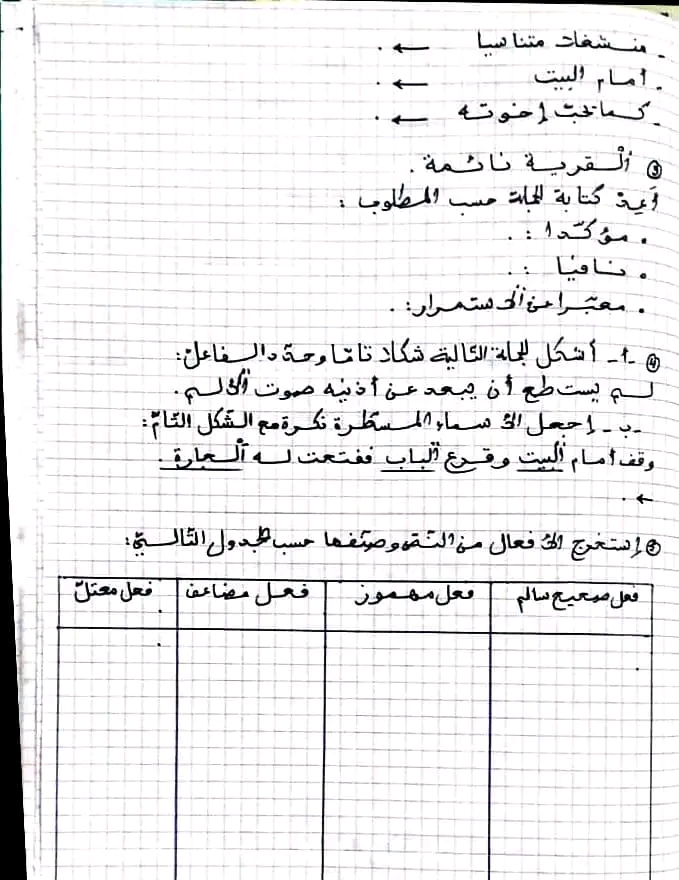 - منشغلت متناسيا ← .
- أمام البيت ← .
- كما يحبّ إخوته ← .
③ ألقرية نائمة .
أعد كتابة الجملة حسب المطلوب :
. مؤكّدا : .
. نافيا : .
. معبّرا عن الاستمرار : .
④ -أ- أشكل الجملة التالية شكلا تامّا وحدّد الفاعل :
لم يستطع أن يبعد عن أذنيه صوت الألم .
-ب- إجعل الأسماء المسطّرة نكرة مع الشّكل التّامّ :
وقف أمام البيت وقرع الباب ففتحت له الجارة .
← .
⑤ إستخرج الأفعال من النّصّ وصنّفها حسب الجدول التّالي :
فعل صحيح سالم فعل مهموز فعل مضاعف فعل معتلّ